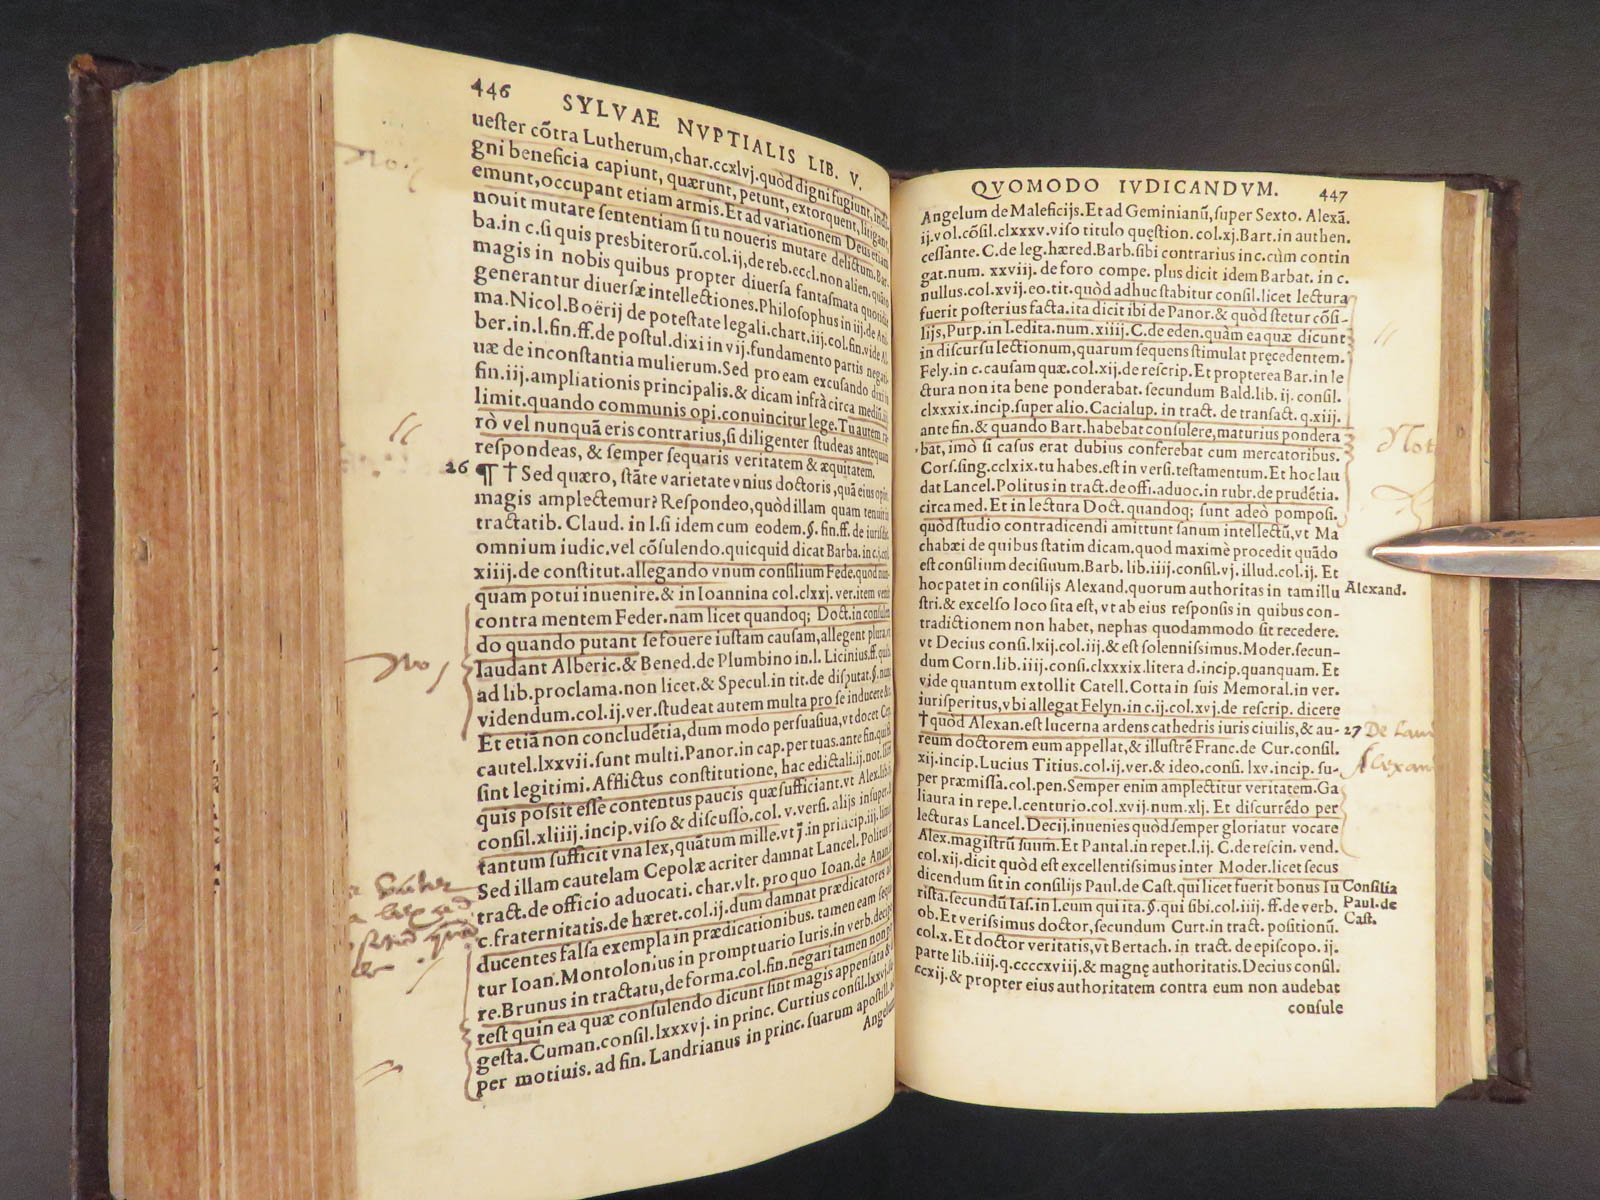 446 SYLVAE NVPTIALIS LIB. V.
uester cõtra Lutherum, char. ccxlvj. quòd digni fugiunt, indi-
gni beneficia capiunt, quærunt, petunt, extorquent, litigant,
emunt, occupant etiam armis. Et ad variationem Deus etiam
nouit mutare sententiam si tu noueris mutare delictum. Bar-
ba. in c. si quis presbiterorũ. col. ij. de reb. eccl. non alien. quãto
magis in nobis quibus propter diuersa fantasmata quotidie
generantur diuersæ intellectiones. Philosophus in iij. de Ani-
ma. Nicol. Boërij de potestate legali. chart. iij. col. fin. vide Al
ber. in. l. fin. ff. de postul. dixi in vij. fundamento partis negati
uæ de inconstantia mulierum. Sed pro eam excusando dixi in
fin. iij. ampliationis principalis. & dicam infrà circa mediũ. iij.
limit. quando communis opi. conuincitur lege. Tu autem ra-
rò vel nunquã eris contrarius, si diligenter studeas antequam
respondeas, & semper sequaris veritatem & æquitatem.
26 ¶ † Sed quæro, stãte varietate vnius doctoris, quã eius opin.
magis amplectemur? Respondeo, quòd illam quam tenuit in
tractatib. Claud. in l. si idem cum eodem. §. fin. ff. de iurisdic.
omnium iudic. vel cõsulendo. quicquid dicat Barba. in c. j. col.
xiiij. de constitut. allegando vnum consilium Fede. quod nun-
quam potui inuenire. & in Ioannina col. clxxj. ver. item venit
contra mentem Feder. nam licet quandoq; Doct. in consulen
do quando putant se fouere iustam causam, allegent plura, vt
laudant Alberic. & Bened. de Plumbino in. l. Licinius. ff. quib.
ad lib. proclama. non licet. & Specul. in tit. de disputat. §. nunc
videndum. col. ij. ver. studeat autem multa pro se inducere &c.
Et etiã non concludẽtia, dum modo persuasiua, vt docet Cep.
cautel. lxxvii. sunt multi. Panor. in cap. per tuas. ante fin. qui fi.
sint legitimi. Afflictus constitutione, hac edictali. ij. not.
quis possit esse contentus paucis quæ sufficiant. vt Alex. lib. ij.
consil. xliiij. incip. viso & discusso. col. v. versi. alijs insuper. h
tantum sufficit vna lex, quãtum mille. vt j. in princip. iij. limi.
Sed illam cautelam Cepolæ acriter damnat Lancel. Politus in
tract. de officio aduocati. char. vlt. pro quo Ioan. de Anan. in
c. fraternitatis. de hæret. col. ij. dum damnat prædicatores ad
ducentes falsa exempla in prædicationibus. tamen eam sequi
tur Ioan. Montolonius in promptuario Iuris. in verb. decipe-
re. Brunus in tractatu, de forma. col. fin. negari tamen non po
test quin ea quæ consulendo dicunt sint magis appensata & di
gesta. Cuman. consil. lxxxvj. in princ. Curtius consil. lxxvj. se
per motiuis. ad fin. Landrianus in princ. suarum apostill. ad
Angelum
No
No
QVOMODO IVDICANDVM. 447
Angelum de Maleficijs. Et ad Geminianũ, super Sexto. Alexã.
ij. vol. cõsil. clxxxv. viso titulo quęstion. col. xj. Bart. in authen.
cessante. C. de leg. hæred. Barb. sibi contrarius in c. cùm contin
gat. num. xxviij. de foro compe. plus dicit idem Barbat. in c.
nullus. col. xvij. eo. tit. quòd adhuc stabitur consil. licet lectura
fuerit posterius facta. ita dicit ibi de Panor. & quòd stetur cõsi-
lijs, Purp. in l. edita. num. xiiij. C. de eden. quàm ea quæ dicunt
in discursu lectionum, quarum sequens stimulat pręcedentem.
Fely. in c. causam quæ. col. xij. de rescrip. Et propterea Bar. in le
ctura non ita bene ponderabat. secundum Bald. lib. ij. consil.
clxxxix. incip. super alio. Cacialup. in tract. de transact. q. xiij.
ante fin. & quando Bart. habebat consulere, maturius pondera
bat, imò si casus erat dubius conferebat cum mercatoribus.
Cors. sing. cclxix. tu habes. est in versi. testamentum. Et hoc lau
dat Lancel. Politus in tract. de offi. aduoc. in rubr. de prudẽtia.
circa med. Et in lectura Doct. quandoq; sunt adeò pomposi.
quòd studio contradicendi amittunt sanum intellectũ, vt Ma
chabæi de quibus statim dicam. quod maximè procedit quãdo
est consilium decisiuum. Barb. lib. iiij. consil. vj. illud. col. ij. Et
hoc patet in consilijs Alexand. quorum authoritas in tam illu
stri. & excelso loco sita est, vt ab eius responsis in quibus con-
tradictionem non habet, nephas quodammodo sit recedere.
vt Decius consi. lxij. col. iij. & est solennissimus. Moder. secun-
dum Corn. lib. iiij. consi. clxxxix. litera d. incip. quanquam. Et
vide quantum extollit Catell. Cotta in suis Memoral. in ver.
iurisperitus, vbi allegat Felyn. in c. ij. col. xv. de rescrip. dicere
† quòd Alexan. est lucerna ardens cathedris iuris ciuilis, & au-
reum doctorem eum appellat, & illustrẽ Franc. de Cur. consil.
xij. incip. Lucius Titius. col. ij. ver. & ideo. consi. lxv. incip. su-
per præmissa. col. pen. Semper enim amplectitur veritatem. Ga
liaura in repe. l. centurio. col. xvij. num. xlj. Et discurrẽdo per
lecturas Lancel. Decij. inuenies quòd semper gloriatur vocare
Alex. magistrũ suum. Et Pantal. in repet. l. ij. C. de rescin. vend.
col. xij. dicit quòd est excellentissimus inter Moder. licet secus
dicendum sit in consilijs Paul. de Cast. qui licet fuerit bonus Iu
rista. secundũ Ias. in l. eum qui ita. §. qui sibi. col. iiij. ff. de verb.
ob. Et verissimus doctor, secundum Curt. in tract. positionũ.
col. x. Et doctor veritatis, vt Bertach. in tract. de episcopo. ij.
parte lib. iiij. q. ccccxviij. & magnę authoritatis. Decius consil.
ccxij. & propter eius authoritatem contra eum non audebat
consule
Not
Alexand.
27 De Lau
Alexan
Consilia
Paul. de
Cast.